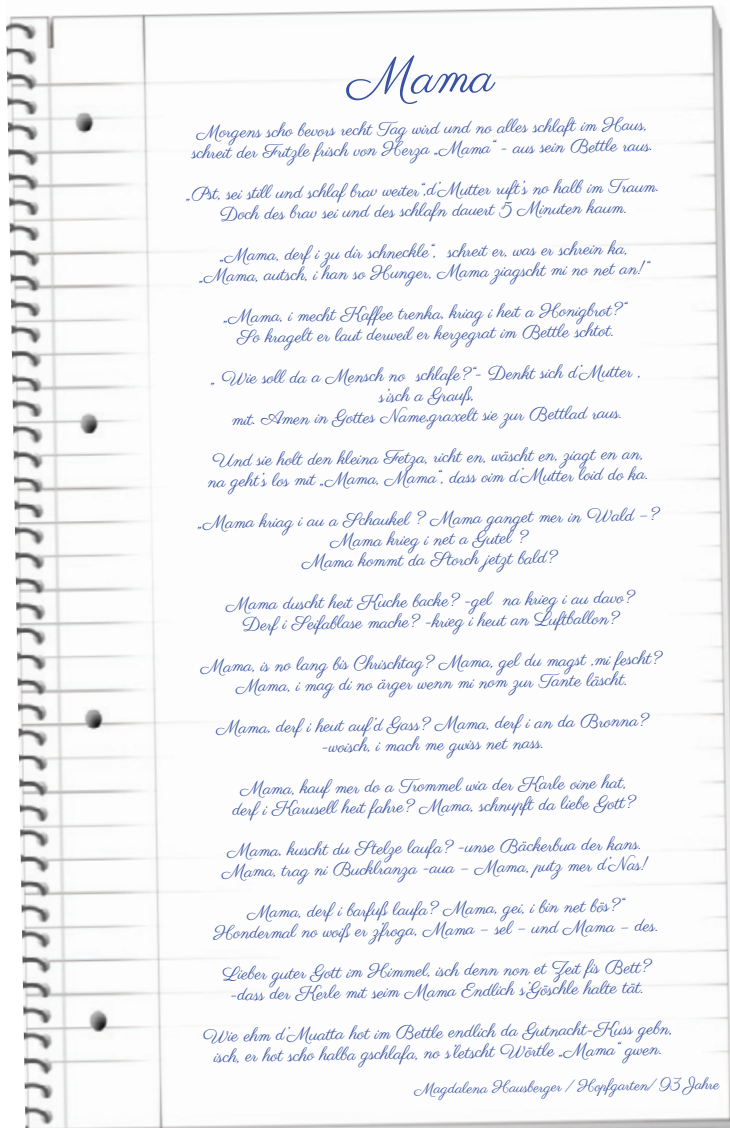 Mama
Morgens scho bevors recht Tag wird und no alles schlaft im Haus,
schreit der Fritzle frisch von Herza „Mama“ - aus sein Bettle raus.
„Pst, sei still und schlaf brav weiter“,d‘Mutter ruft‘s no halb im Traum.
Doch des brav sei und des schlafn dauert 5 Minuten kaum.
„Mama, derf i zu dir schneckle“,  schreit er, was er schrein ka,
„Mama, autsch, i han so Hunger, Mama ziagscht mi no net an!“
„Mama, i mecht Kaffee trenka, kriag i heit a Honigbrot?“
So kragelt er laut derweil er kerzegrat im Bettle schtot.
„ Wie soll da a Mensch no  schlafe?“- Denkt sich d‘Mutter ,
s‘isch a Grauß,
mit. Amen in Gottes Name,graxelt sie zur Bettlad raus.
Und sie holt den kleina Fetza, richt en, wäscht en, ziagt en an,
na geht‘s los mit „Mama, Mama“, dass oim d‘Mutter loid do ka.
„Mama kriag i au a Schaukel ? Mama ganget mer in Wald –?
Mama krieg i net a Gutel ?
Mama kommt da Storch jetzt bald?
Mama duscht heit Kuche backe? -gel  na krieg i au davo?
Derf i Seifablase mache? -krieg i heut an Luftballon?
Mama, is no lang bis Chrischtag? Mama, gel du magst ,mi fescht?
Mama, i mag di no ärger wenn mi nom zur Tante läscht.
Mama, derf i heut auf‘d Gass? Mama, derf i an da Bronna?
-woisch, i mach me gwiss net nass.
Mama, kauf mer do a Trommel wia der Karle oine hat,
derf i Karusell heit fahre? Mama, schnupft da liebe Gott?
Mama, kuscht du Stelze laufa? -unse Bäckerbua der kans.
Mama, trag ni Bucklranza -aua – Mama, putz mer d‘Nas!
Mama, derf i barfuß laufa? Mama, gei, i bin net bös?“
Hondermal no woiß er z‘froga, Mama – sel – und Mama – des.
Lieber guter Gott im Himmel, isch denn non et Zeit fis Bett?
-dass der Kerle mit seim Mama Endlich s‘Göschle halte tät.
Wie ehm d‘Muatta hot im Bettle endlich da Gutnacht-Kuss gebn,
isch, er hot scho halba gschlafa, no s‘letscht Wörtle „Mama“ gwen.
Magdalena Hausberger / Hopfgarten/ 93 Jahre